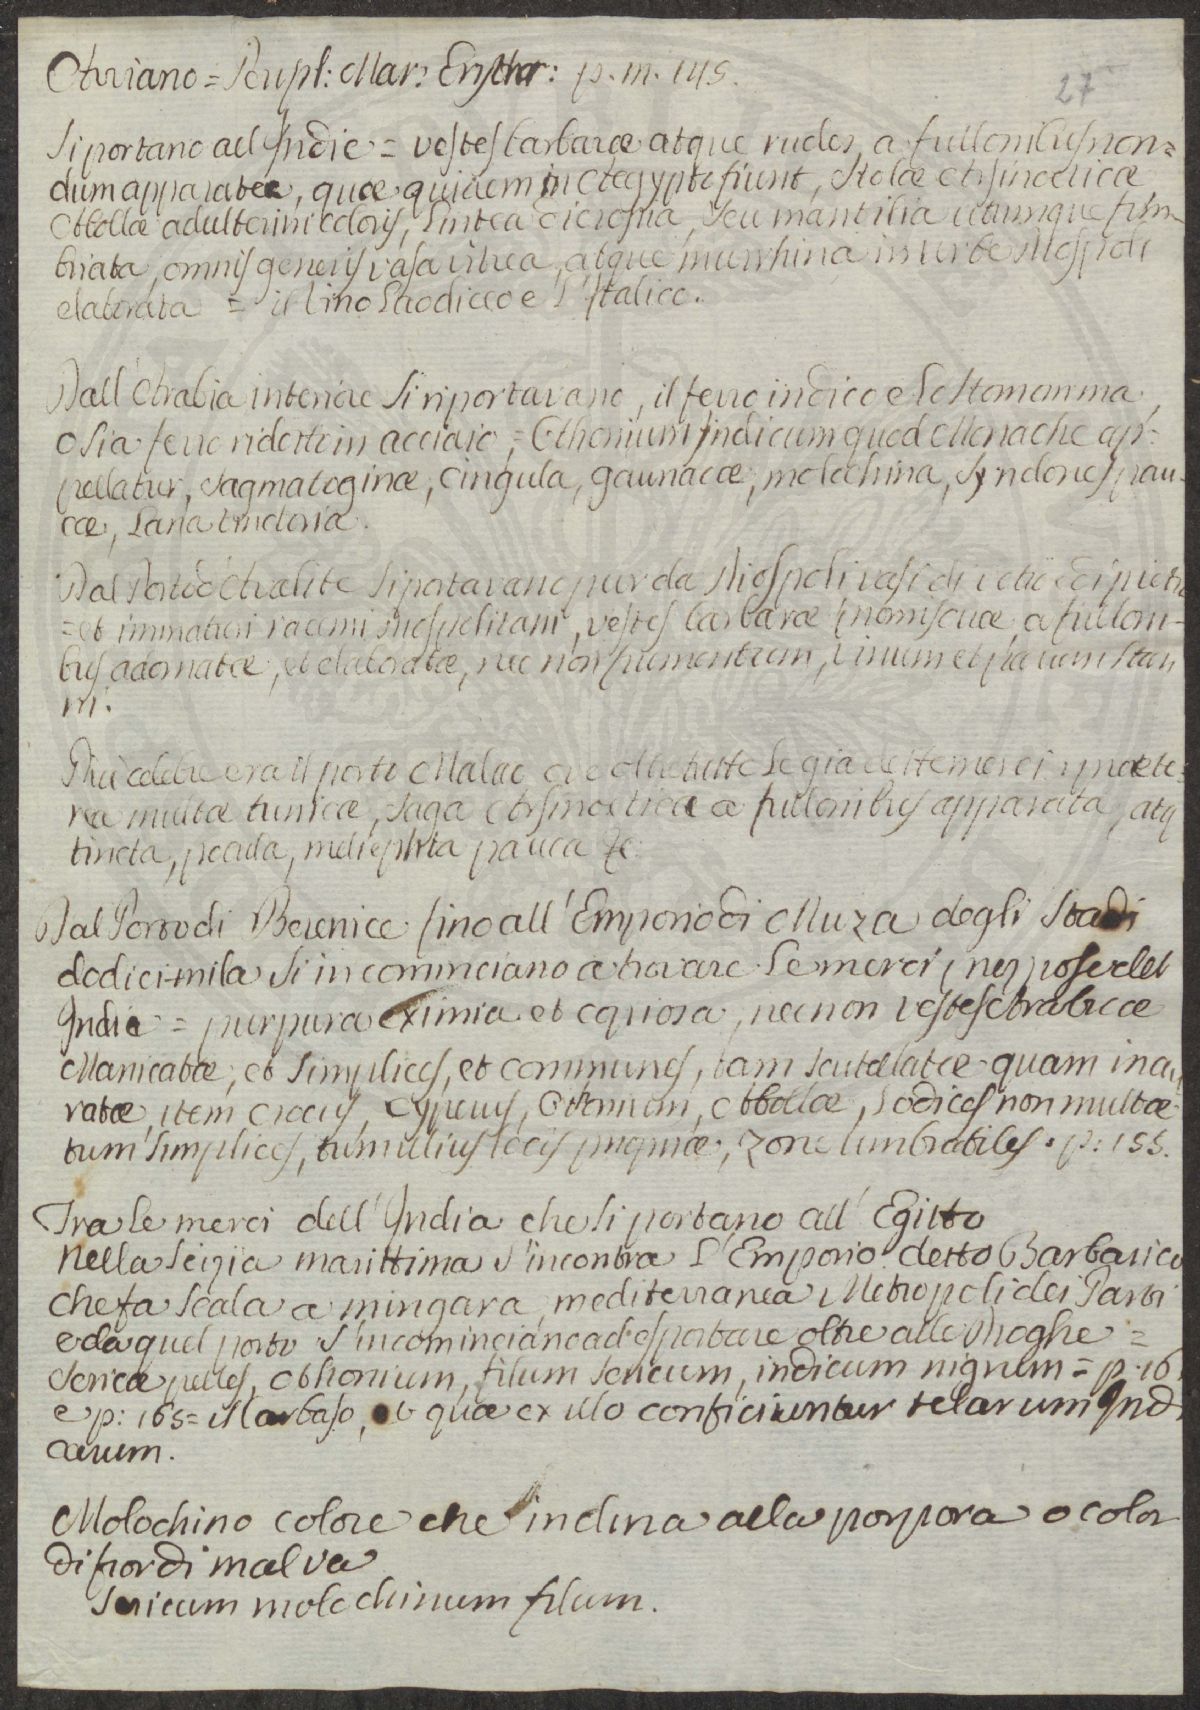 Arriano = Peripl: Mar: Erythr: p. m. 145.
27
Si portano all'Indie = vestes barbaræ atque rudes, a fullonibus non=
dum apparatæ, quæ quidem in Aegypto fiunt, stolæ Arsinoeticæ
Abollæ adulterini coloris, lintea dicrossia, seu mantilia utrimque fim=
briata, omnis generis vasa vitrea, atque murrhina in urbe Diospoli
elaborata = il lino Laodiceo e l'Italico.
Dall'Arabia interiore si riportavano, il ferro indico e lo stomomma,
o sia ferro ridotto in acciaio, = Othonium Indicum quod Monache ap=
pellatur, sagmatoginæ, cingula, gaunacæ, molochina, Syndones pau=
cæ, Lana tinctoria.
Dal Porto Avalite si portavano pur da Diospoli vasi di vetro di pietra
= et immaturi racemi Diospolitani, vestes barbaræ promiscuæ, a fulloni=
bus adornatæ, et elaboratæ, nec non frumentum, vinum et parum stan
ni.
Più celebre era il porto Malao ove oltre tutte le già dette merci, præte=
rea multæ tunicæ, saga Arsinoetica a fullonibus apparata, atq
tincta, pocula, meliephta pauca &c:
Dal Porto di Berenice sino all'Emporio di Muza degli Stadi
dodici mila si incominciano a trovare le merci preziose del
Indie = purpura eximia et copiosa, nec non vestes Arabicæ
Manicatæ, et simplices, et communes, tam scutulatæ quam inau
ratæ, item crocus, cyperus, Othonium, Abollæ, Lodices non multæ
tum simplices, tum illius locis propriæ, zone umbratiles. p: 155.
Tra le merci dell'India che si portano all'Egitto
nella Scizia marittima s'incontra l'Emporio detto Barbarico
che fa scala a mingara mediterranea Metropoli dei Parti
e da quel porto s'incominciano ad esportare oltre alle Droghe =
Sericæ pelles, othonium, filum sericum, indicum nigrum = p. 16
e p: 165 = Marbaso, et quæ ex illo conficiuntur telarum Ind
icarum.
Molochino colore che inclina alla porpora o color
di fior di malva
Sericum molochinum filum.